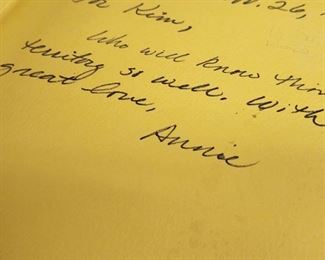 Kim, 26,
Who will know
territory so well. With
great love,
Annie